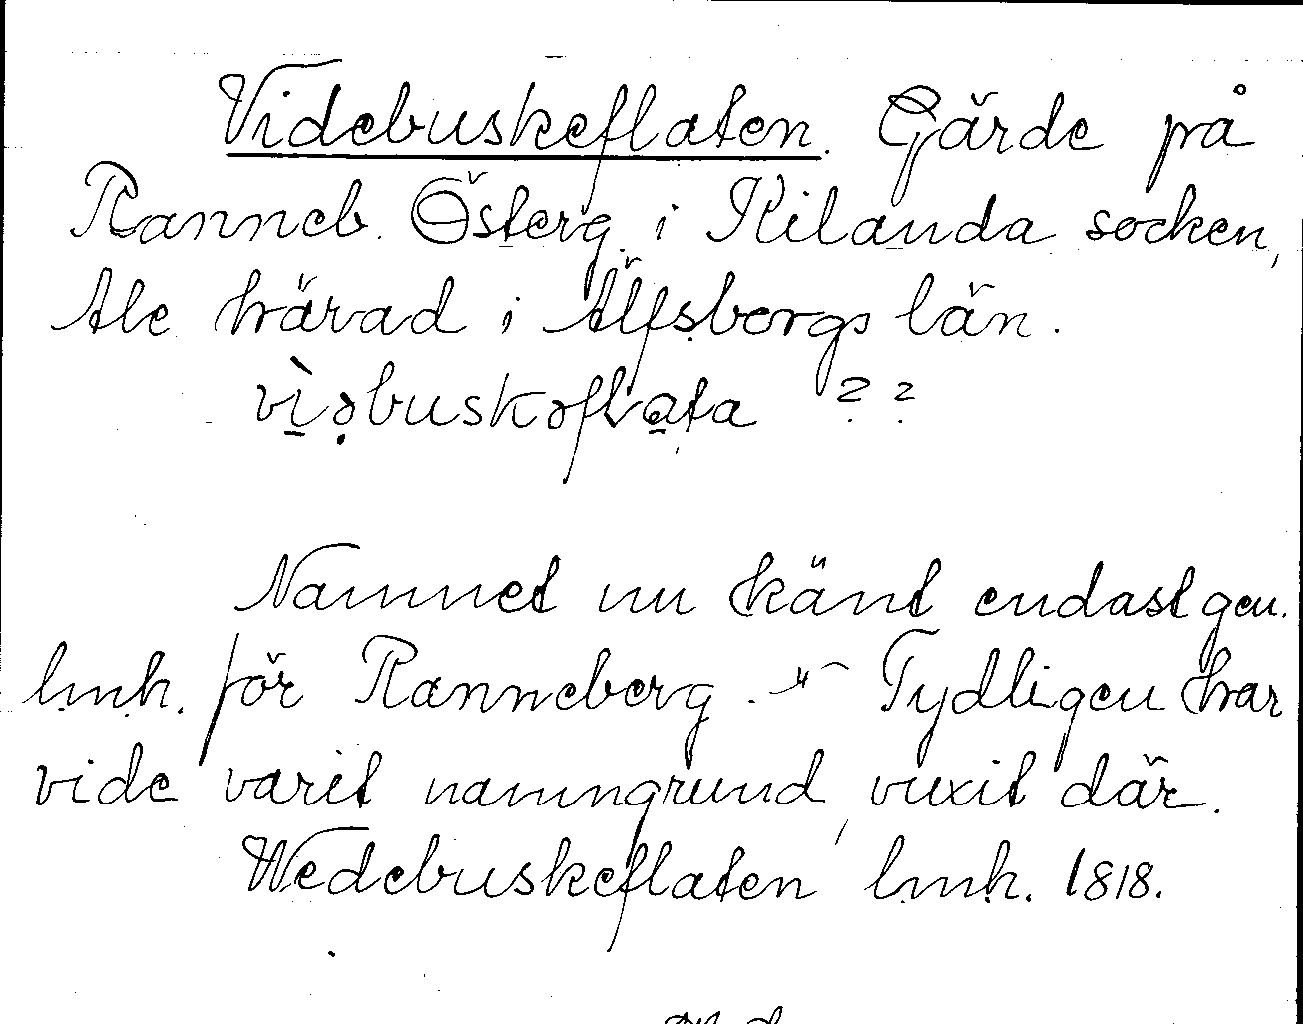 Videbuskeflaten. Gärde på
Ranneb. Österg. i Kilanda socken,
Ale härad i Älfsborgs län.
vìəbuskəflata ??
Namnet nu känt endast gen.
lmh. för Ranneberg. Tydligen har
vide varit namngrund, vuxit där.
Wedebuskeflaten lmh. 1818.